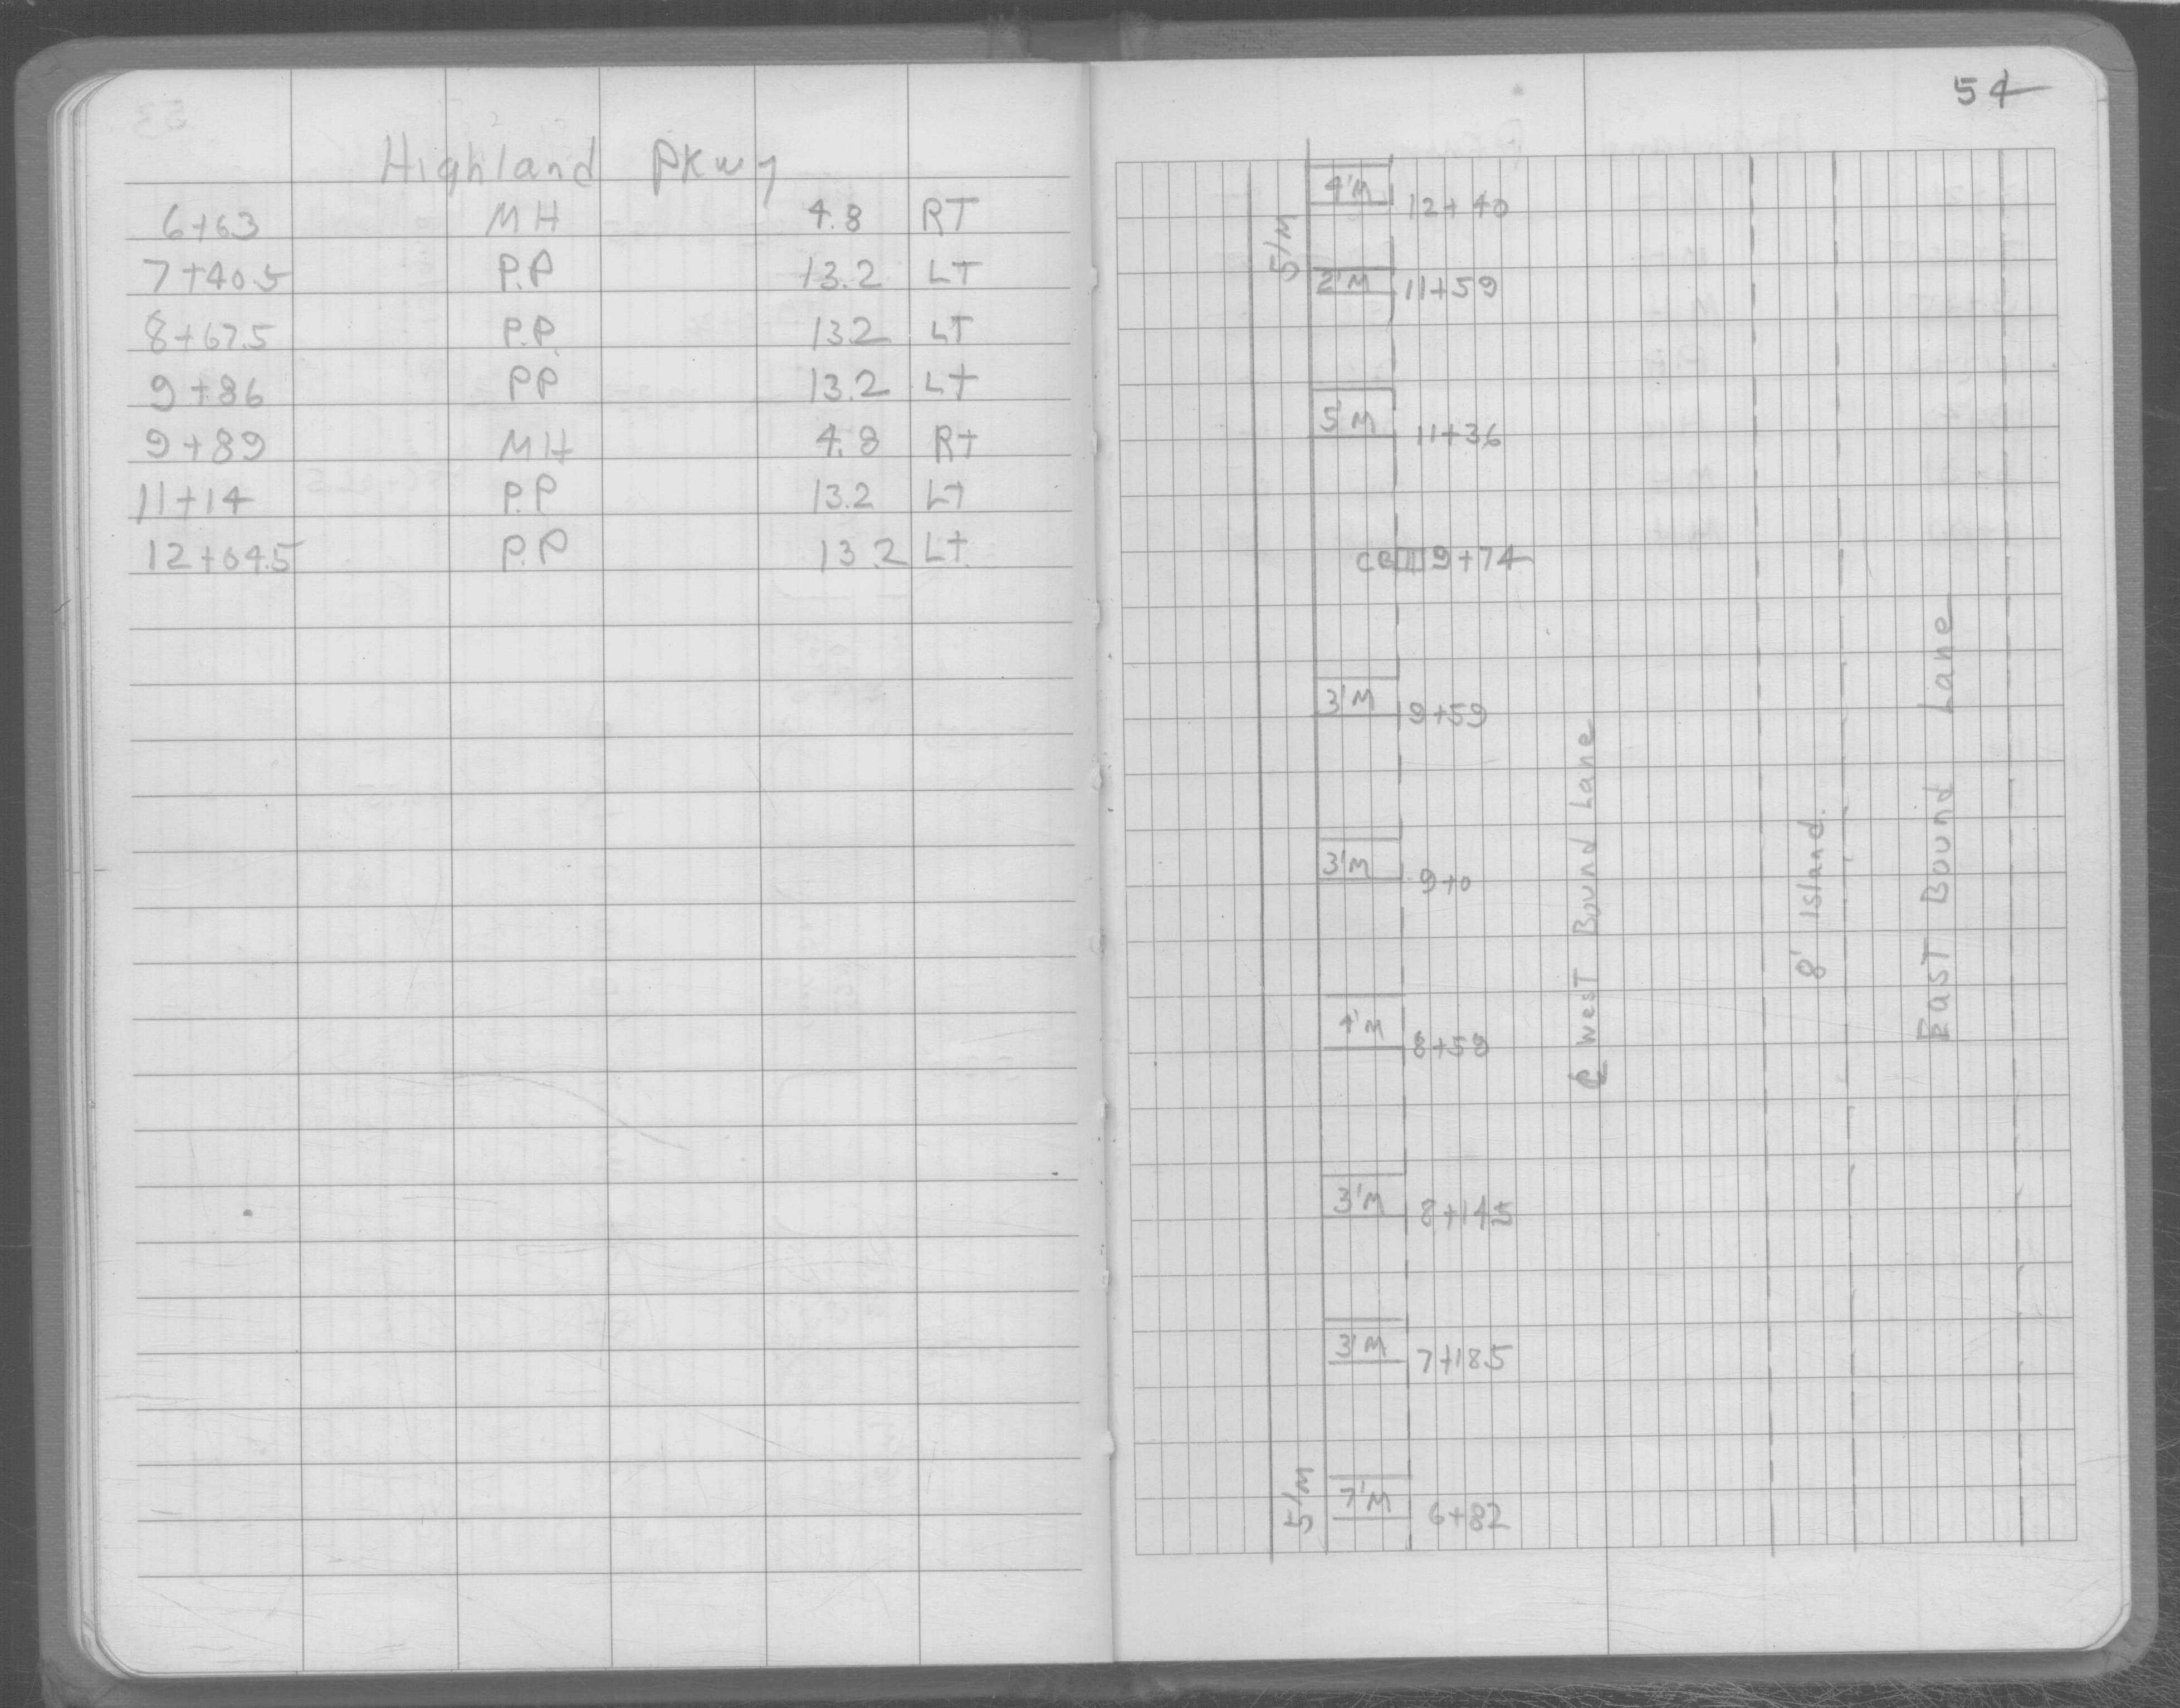 Highland PKwy
6+63 MH 4.8 RT
7+40.5 P.P 13.2 LT
8+67.5 P.P. 13.2 LT
9+86 PP 13.2 LT
9+89 MH 4.8 RT
11+14 P.P 13.2 LT
12+64.5 P.P 13.2 LT
54
4'M 12+40
5'M
2'M 11+59
5'M 11+36
CB 9+74
3'M 9+59
3'M 9+0
4'M 8+59
3'M 8+14.5
3'M 7+18.5
7'M 6+82
5'M
℄ West Bound Lane
8' Island.
East Bound Lane